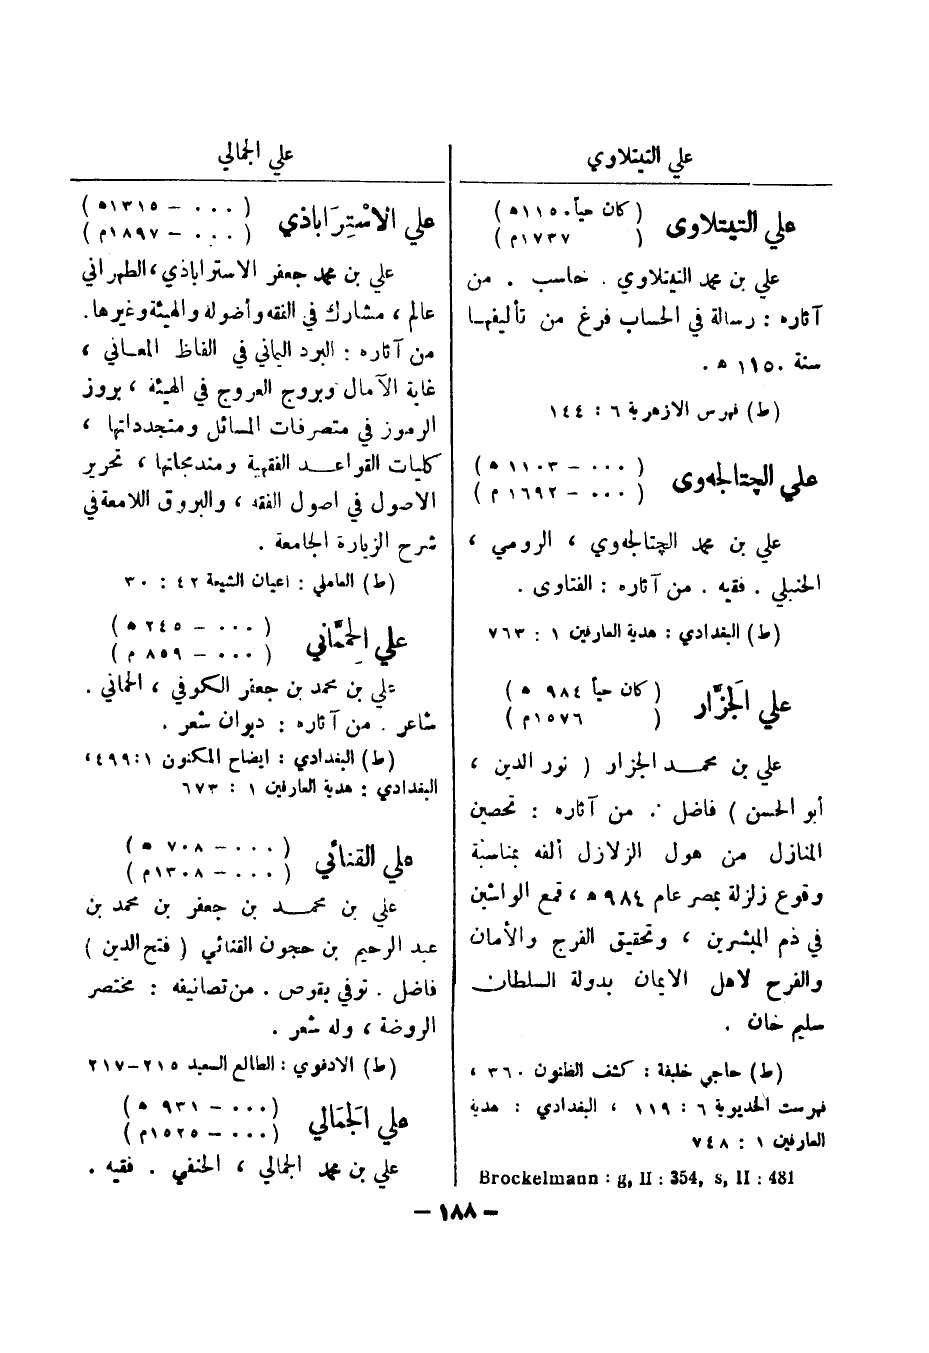 علي التيتلاوي
علي التيتلاوى
( كان حياً ١١٥٠ ه )
( ١٧٣٧ م )
علي بن محمد التيتلاوي . حاسب . من
آثاره : رسالة في الحساب فرغ من تأليفها
سنة ١١٥٠ ه .
(ط) فهرس الازهرية ٦ : ١٤٤
علي الچتالجوى
( ٠٠٠ – ١١٠٣ ه )
( ٠٠٠ – ١٦٩٢ م )
علي بن محمد الچتالجوي ، الرومي ،
الحنبلي . فقيه . من آثاره : الفتاوى .
(ط) البغدادي : هدية العارفين ١ : ٧٦٣
علي الجزَّار
( كان حياً ٩٨٤ ه )
( ١٥٧٦ م )
علي بن محمد الجزار ( نور الدين ،
أبو الحسن ) فاضل . من آثاره : تحصين
المنازل من هول الزلازل ألفه بمناسبة
وقوع زلزلة بمصر عام ٩٨٤ ه ، قمع الواشين
في ذم المبشرين ، وتحقيق الفرج والأمان
والفرح لاهل الايمان بدولة السلطان
سليم خان .
(ط) حاجي خليفة : كشف الظنون ٣٦٠ ،
فهرست الخديوية ٦ : ١١٩ ، البغدادي : هدية
العارفين ١ : ٧٤٨
Brockelmann : g, II : 354, s, II : 481
علي الجمالي
علي الاسْتِرَاباذي
( ٠٠٠ – ١٣١٥ ه )
( ٠٠٠ – ١٨٩٧ م )
علي بن محمد جعفر الاستراباذي ، الطهراني
عالم ، مشارك في الفقه وأصوله والهيئة وغيرها .
من آثاره : البرد اليماني في الفاظ المعاني ،
غاية الآمال وبروج العروج في الهيئة ، بروز
الرموز في متصرفات المسائل ومتجدداتها ،
كليات القواعد الفقهية ومندمجاتها ، تحرير
الاصول في اصول الفقه ، والبروق اللامعة في
شرح الزيارة الجامعة .
(ط) العاملي : اعيان الشيعة ٤٢ : ٣٠
علي الحِمَّاني
( ٠٠٠ – ٢٤٥ ه )
( ٠٠٠ – ٨٥٩ م )
علي بن محمد بن جعفر الكوفي ، الحماني .
شاعر . من آثاره : ديوان شعر .
(ط) البغدادي : ايضاح المكنون ١ : ٤٩٩ ،
البغدادي : هدية العارفين ١ : ٦٧٣
علي القنائي
( ٠٠٠ – ٧٠٨ ه )
( ٠٠٠ – ١٣٠٨ م )
علي بن محمد بن جعفر بن محمد بن
عبد الرحيم بن حجون القنائي ( فتح الدين )
فاضل . توفي بقوص . من تصانيفه : مختصر
الروضة ، وله شعر .
(ط) الادفوي : الطالع السعيد ٢١٥–٢١٧
علي الجَمالي
( ٠٠٠ – ٩٣١ ه )
( ٠٠٠ – ١٥٢٥ م )
علي بن محمد الجمالي ، الحنفي . فقيه .
– ١٨٨ –